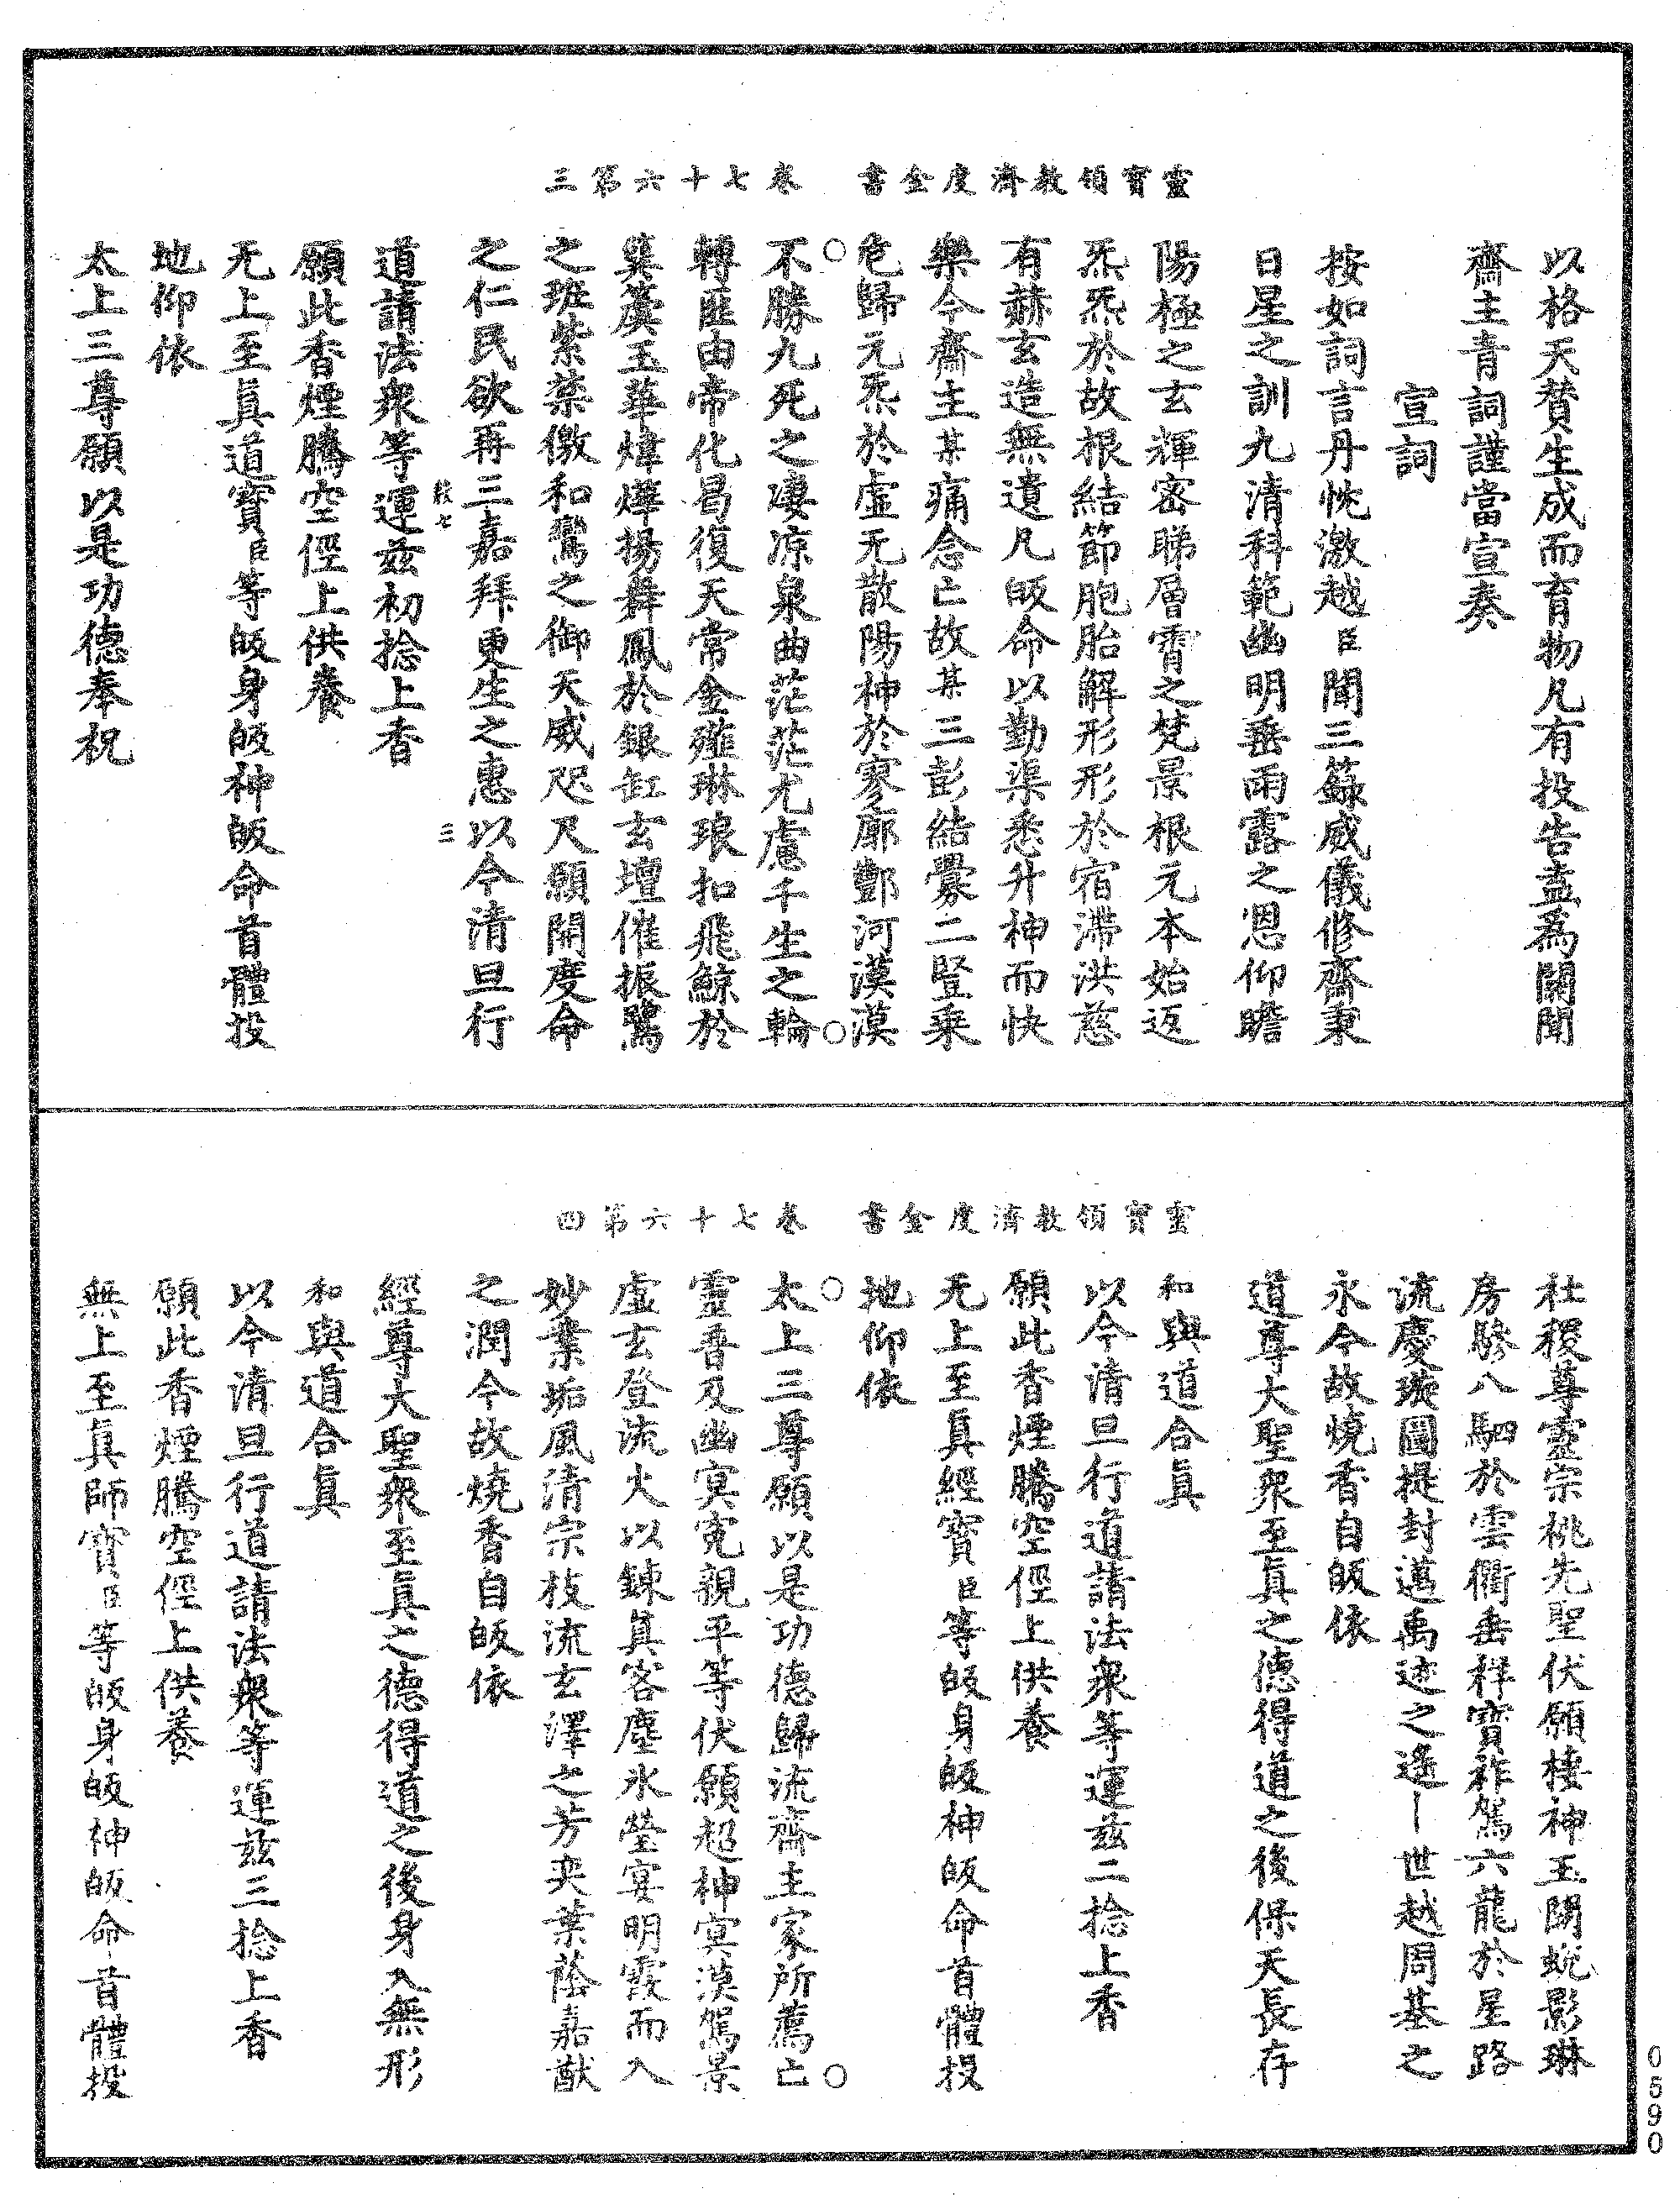 靈寶領教濟度金書　卷七十六第三
以格天贊生成而育物凡有投告盍為開聞
齋主青詞謹當宣奏
宣詞
按如詞言丹忱激越臣聞三籙威儀修齋秉
日星之訓九清科範幽明垂雨露之恩仰瞻
陽極之玄輝密睇層霄之梵景根元本始返
炁炁於故根結節胞胎解形形於宿滯洪慈
有赫玄造無遺凡皈命以勤渠悉升神而快
樂今齋主某痛念亡故某三彭結釁二豎乘
危歸元炁於虛无散陽神於寥廓酆河漠漠
不勝九死之凄涼泉曲茫茫尤慮千生之輪
轉匪由帝化曷復天常金薤琳琅扣飛鯨於
簨簴玉華煒燁揚舞鳳於銀缸玄壇催振鷺
之班紫禁儆和鸞之御天威咫尺願開度命
之仁民欲再三嘉拜更生之惠以今清旦行
道請法衆等運茲初捻上香
願此香煙騰空徑上供養
无上至眞道寶臣等皈身皈神皈命首體投
地仰依
太上三尊願以是功德奉祝
三
靈寶領教濟度金書　卷七十六第四
社稷尊靈宗桃先聖伏願棲神玉闕蛻影琳
房驂八駟於雲衢垂祥寶祚駕六龍於星路
流慶璇圖提封邁禹迹之遙丨世越周基之
永今故燒香自皈依
道尊大聖衆至眞之德得道之後保天長存
和與道合眞
以今清旦行道請法衆等運茲二捻上香
願此香煙騰空徑上供養
无上至眞經寶臣等皈身皈神皈命首體投
地仰依
太上三尊願以是功德歸流齋主家所薦亡
靈吾及幽冥寃親平等伏願超神㝠漠駕景
虛玄登流火以鍊眞客塵氷瑩宴明霞而入
妙業垢風清宗枝流玄澤之芳奕葉蔭嘉猷
之潤今故燒香自皈依
經尊大聖衆至眞之德得道之後身入無形
和與道合眞
以今清旦行道請法衆等運茲三捻上香
願此香煙騰空徑上供養
無上至眞師寶臣等皈身皈神皈命首體投
0590